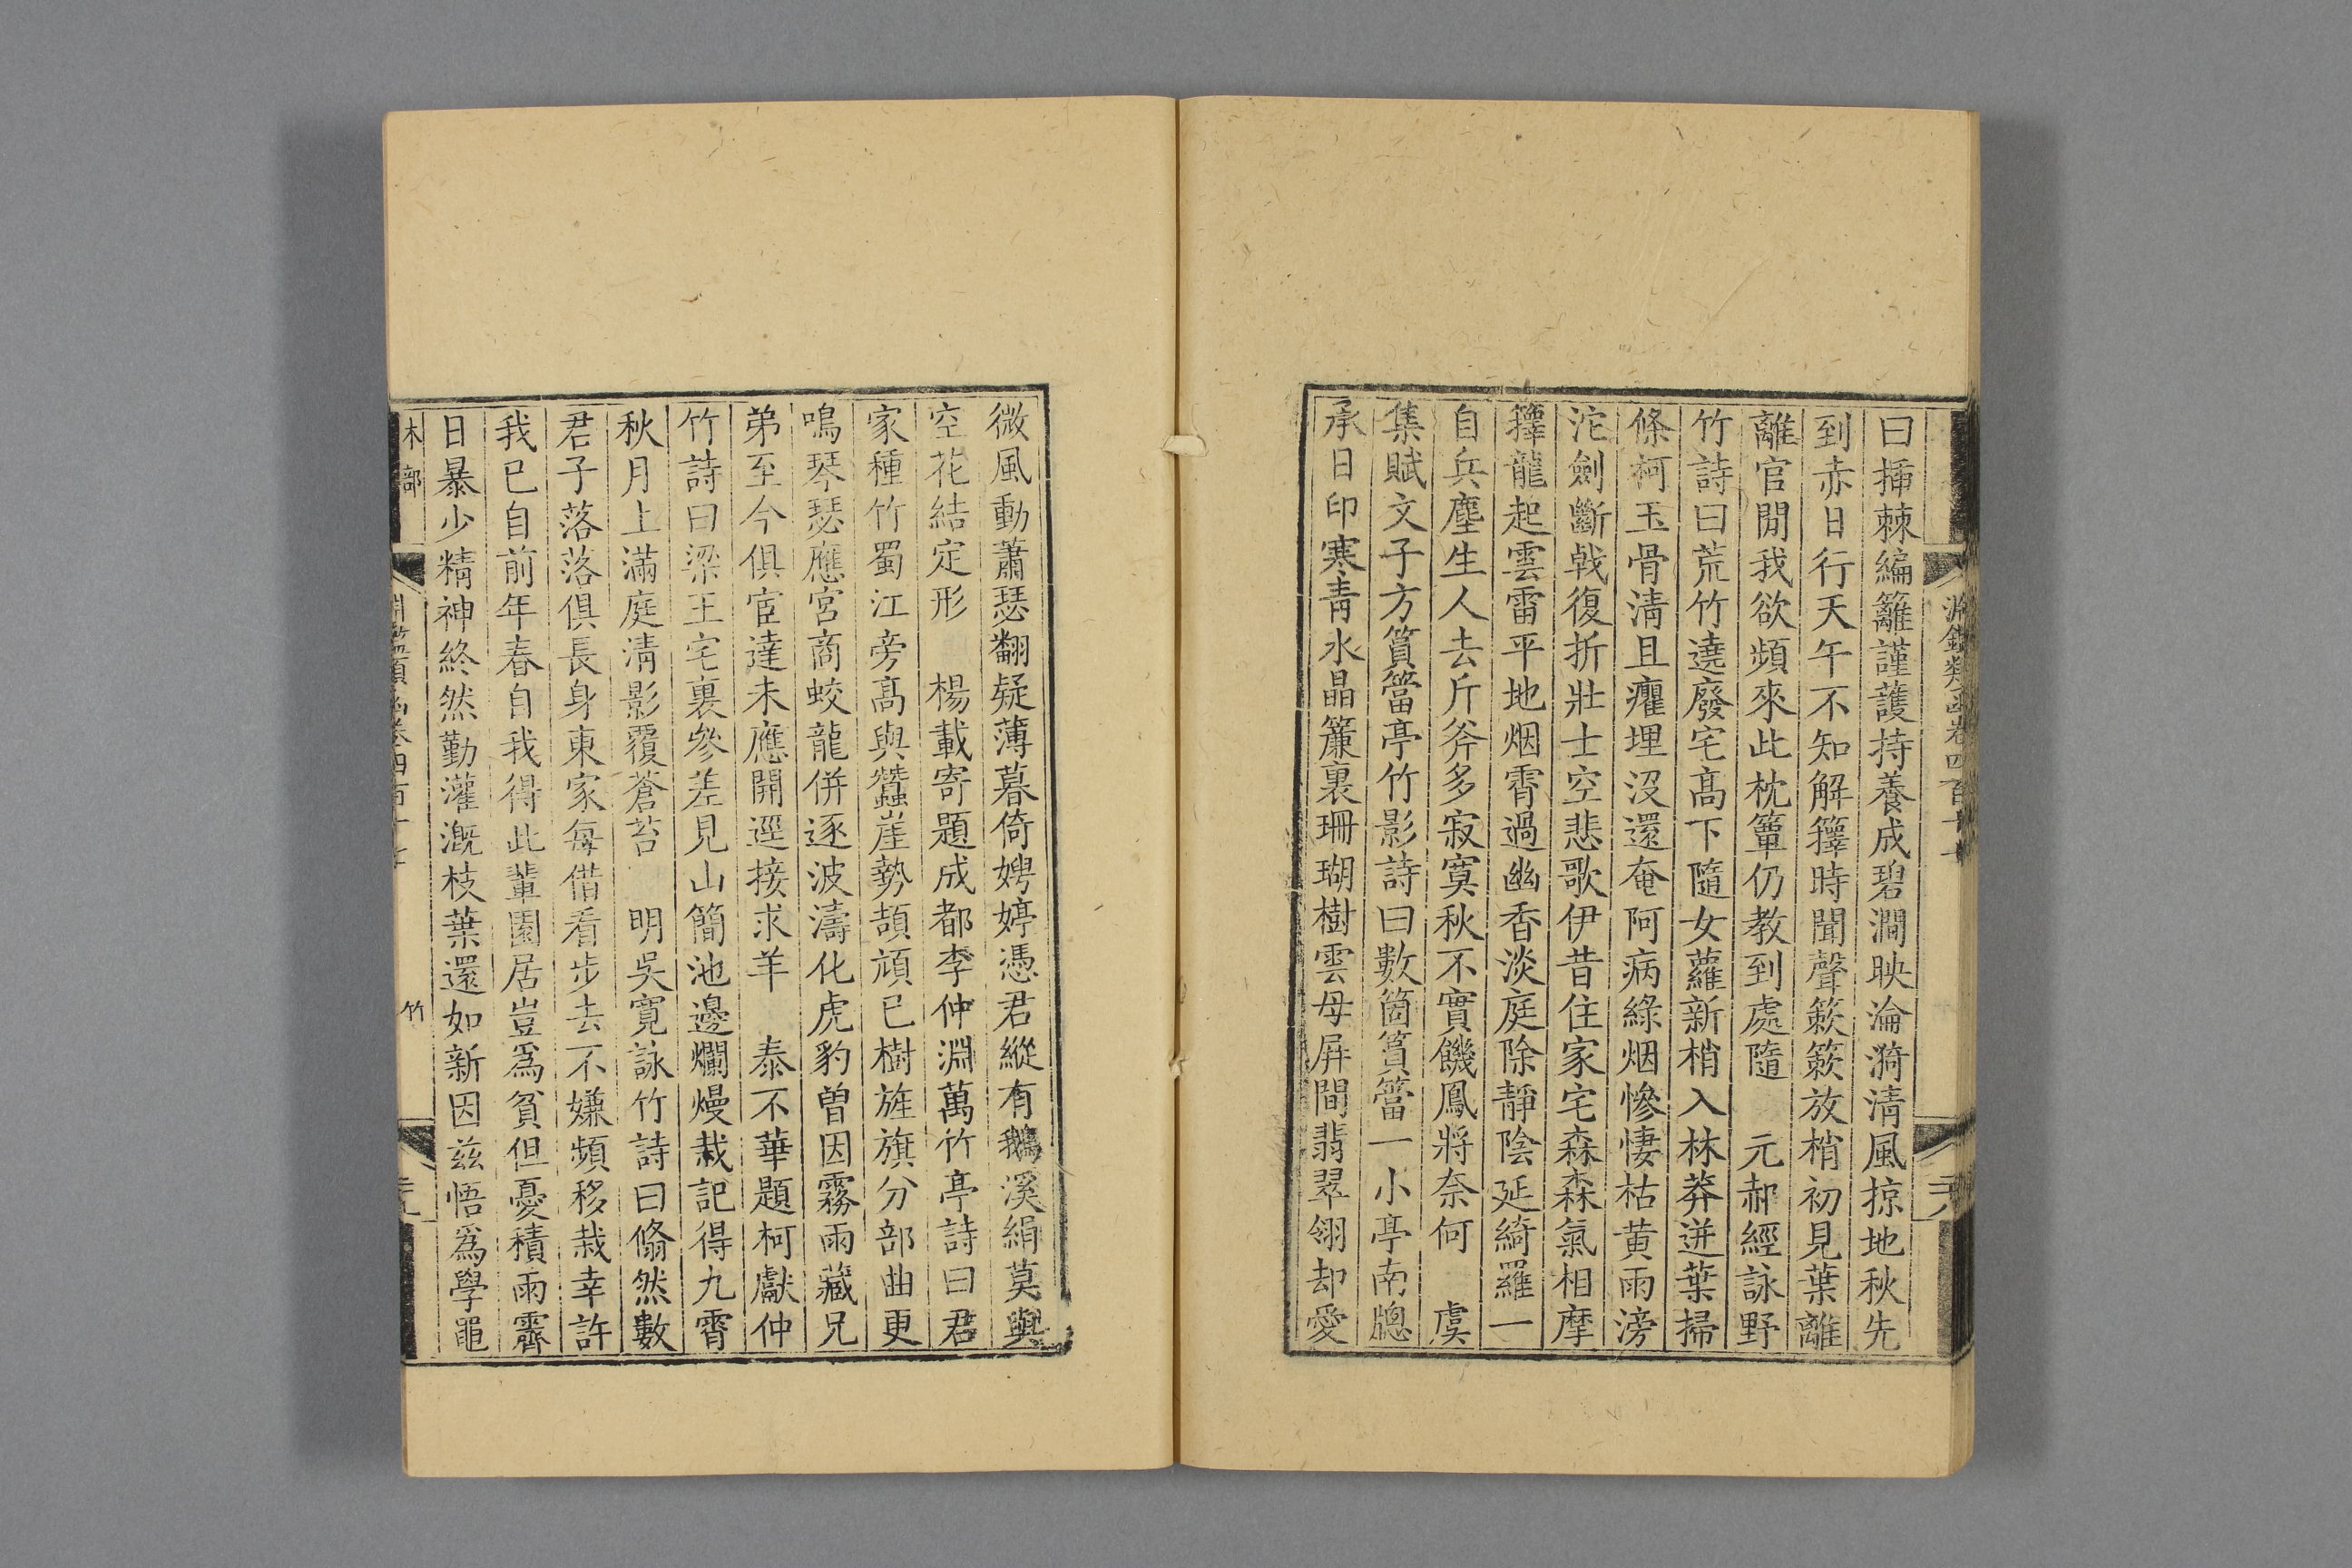 淵鑑類函卷四百十七
曰揷棘編籬謹護持養成碧澗映淪漪清風掠地秋先
到赤日行天午不知解籜時聞聲簌簌放梢初見葉離
離官閒我欲頻來此枕簟仍教到處隨　元郝經詠野
竹詩曰荒竹遶廢宅高下隨女蘿新梢入林莽迸葉掃
條柯玉骨淸且癯埋沒還奄阿病綠烟慘悽枯黄雨滂
沱劍斷戟復折壯士空悲歌伊昔住家宅森森氣相摩
籜龍起雲雷平地烟霄過幽香淡庭除靜陰延綺羅一
自兵塵生人去斤斧多寂寞秋不實饑鳳將奈何　虞
集賦文子方篔簹亭竹影詩曰數箇篔簹一小亭南牕
承日印寒靑水晶簾裏珊瑚樹雲母屛間翡翠翎却愛
微風動蕭瑟翻疑薄暮倚娉婷憑君縱有鵝溪絹莫與
空花結定形　楊載寄題成都李仲淵萬竹亭詩曰君
家種竹蜀江旁高與蠶崖勢頡頏已樹旌旗分部曲更
鳴琴瑟應宮商蛟龍併逐波濤化虎豹曽因霧雨藏兄
弟至今俱宦達未應開逕接求羊　泰不華題柯獻仲
竹詩曰梁王宅裏參差見山簡池邊爛熳栽記得九霄
秋月上滿庭清影覆蒼苔　明吳寬詠竹詩曰翛然數
君子落落俱長身東家每借看步去不嫌頻移栽幸許
我已自前年春自我得此輩園居豈爲貧但憂積雨霽
日暴少精神終然勤灌漑枝葉還如新因兹悟爲學黽
木部
淵鑑類函卷四百十七
竹